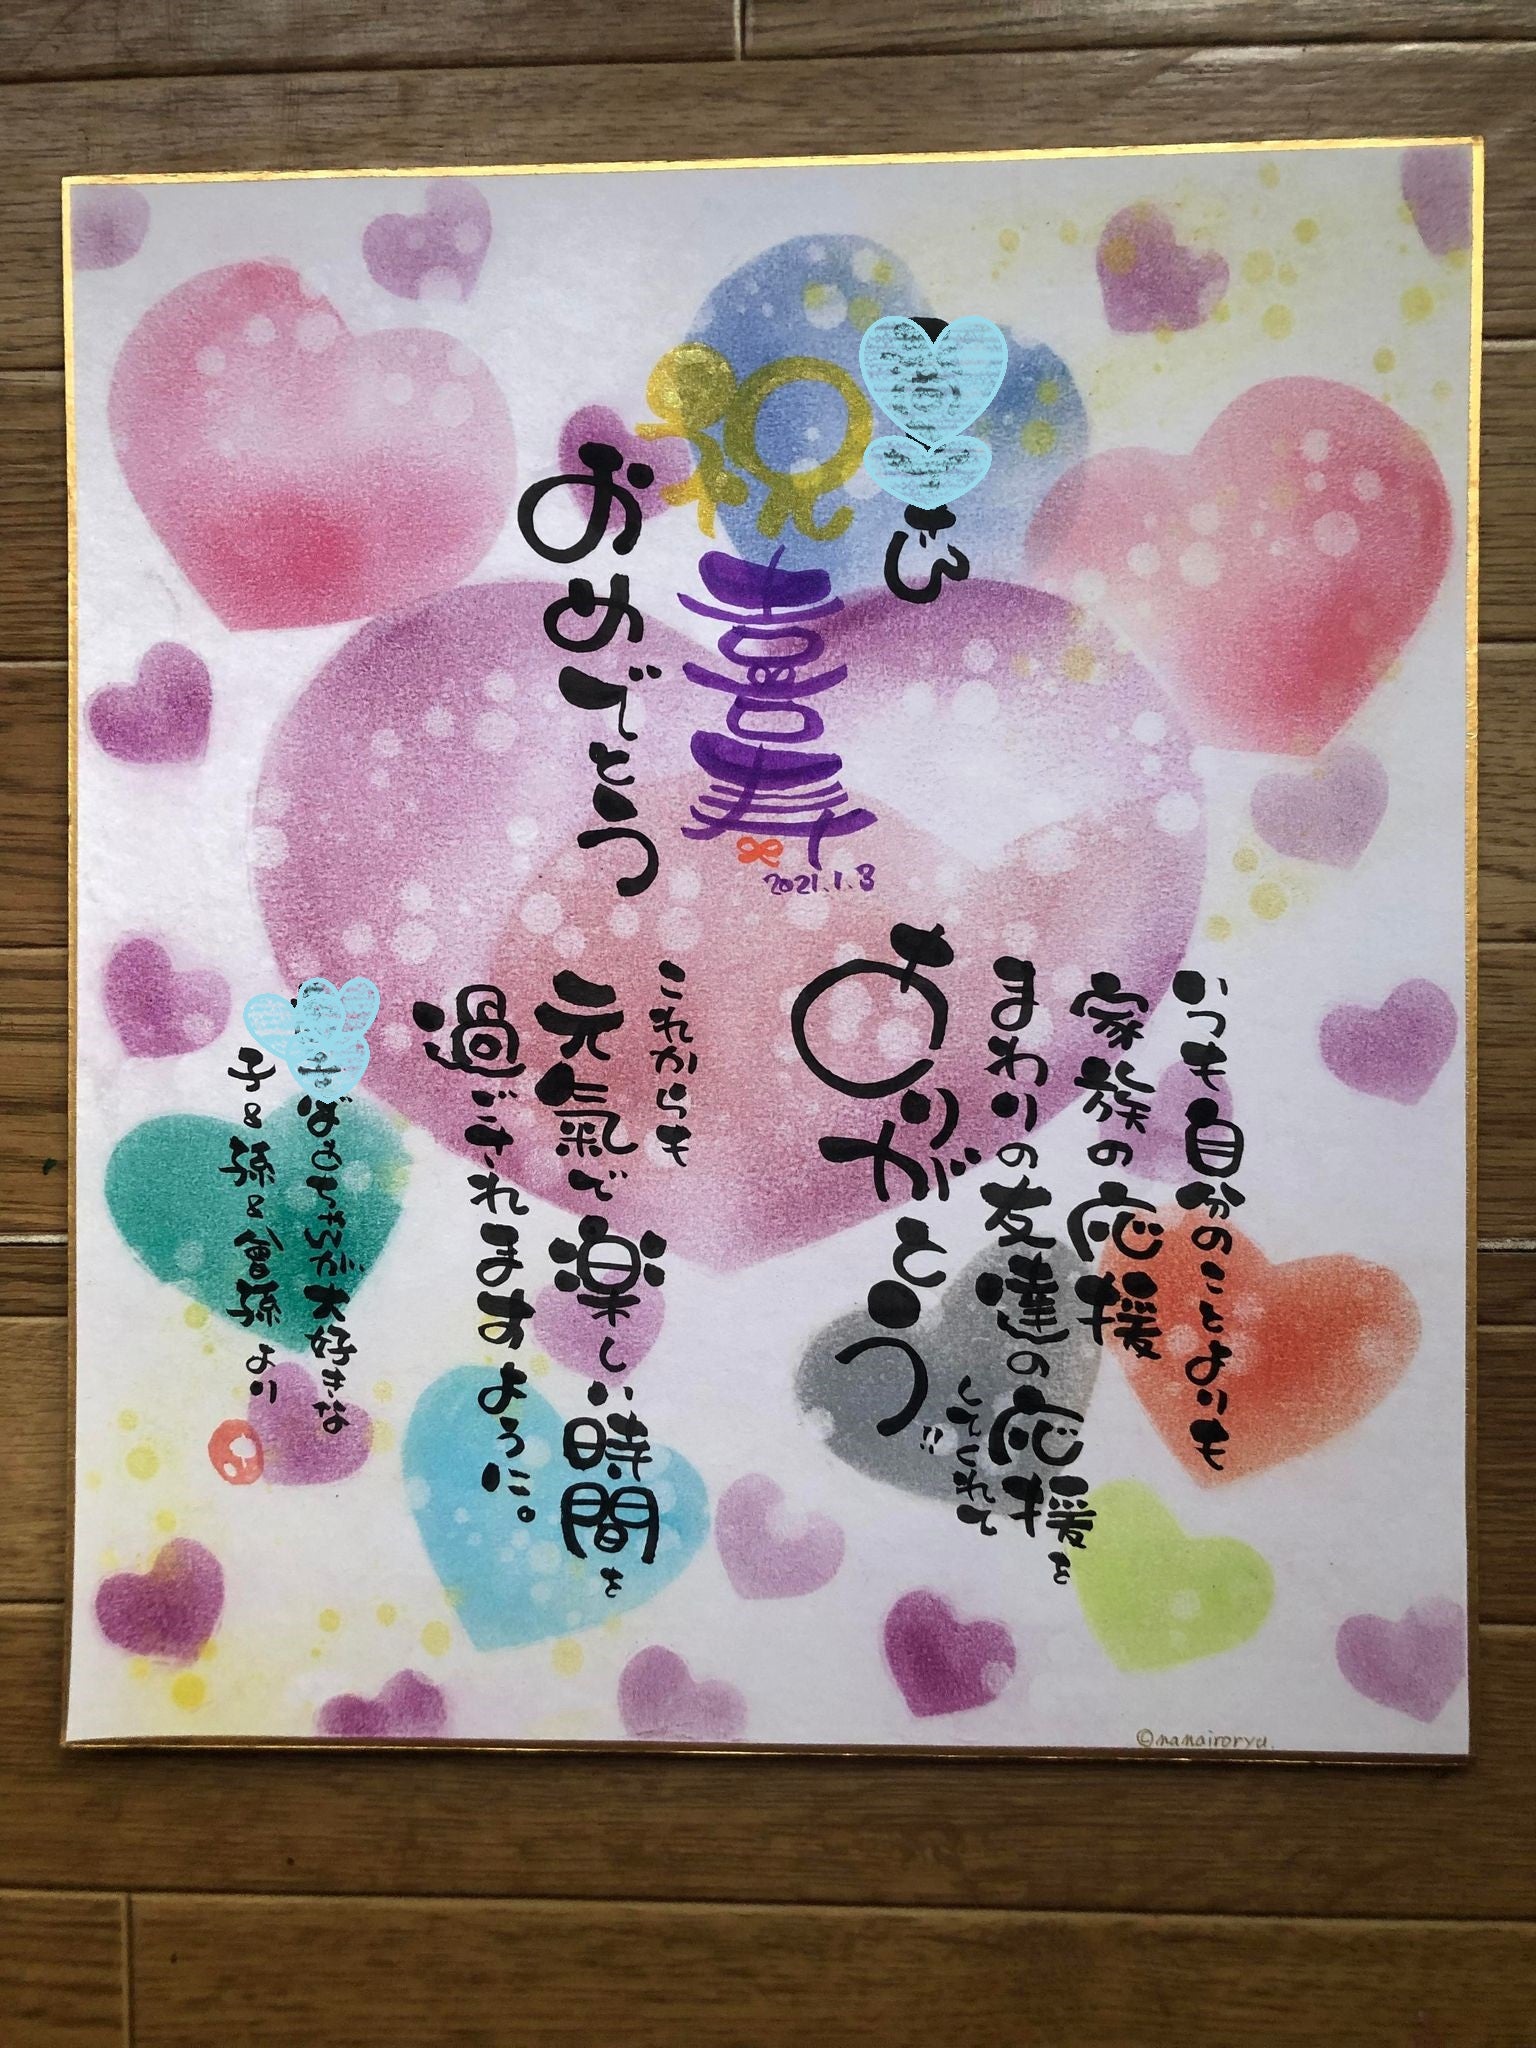 さん
祝
喜寿
2021.1.3
おめでとう
いつも自分のことよりも
家族の応援
まわりの友達の応援を
してくれて
ありがとう!!
これからも
元氣で楽しい時間を
過ごされますように。
ばあちゃんが大好きな
子&孫&曾孫より
©nanairoryu.